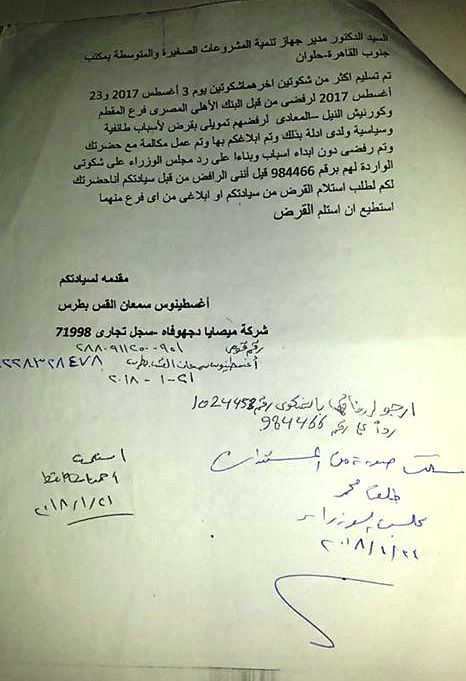 السيد الدكتور مدير جهاز تنمية المشروعات الصغيرة والمتوسطة بمكتب
جنوب القاهرة-حلوان
تم تسليم اكثر من شكوتين اخرهماشكوتين يوم 3 أغسطس 2017 و23
أغسطس 2017 لرفضى من قبل البنك الأهلى المصرى فرع المقطم
وكورنيش النيل –المعادى لرفضهم تمويلى بقرض لأسباب طائفية
وسياسية ولدى ادلة بذلك وتم ابلاغكم بها وتم عمل مكالمة مع حضرتك
وتم رفضى دون ابداء اسباب وبناءا على رد مجلس الوزراء على شكوتى
الواردة لهم برقم 984466 قبل أننى الرافض من قبل سيادتكم أناحضرتك
لكم لطلب استلام القرض من سيادتكم او ابلاغى من اى فرع منهما
استطيع ان استلم القرض
مقدمه لسيادتكم
أغسطينوس سمعان القس بطرس
شركة ميصايا دجهوفاه -سجل تجارى 71998
رقم قومى ٢٨٨٠٩١١٢٠٠٠٩٠١
أغسطينوس سمعان القس بطرس
٢١-١-٢٠١٨
ارجو ارفاقها بالشكوى رقم 1024458
ردا على رقم 984466
استلمت
٢٠١٨/١/٢١
سلمت صورة من المستندات
مجلس الوزراء